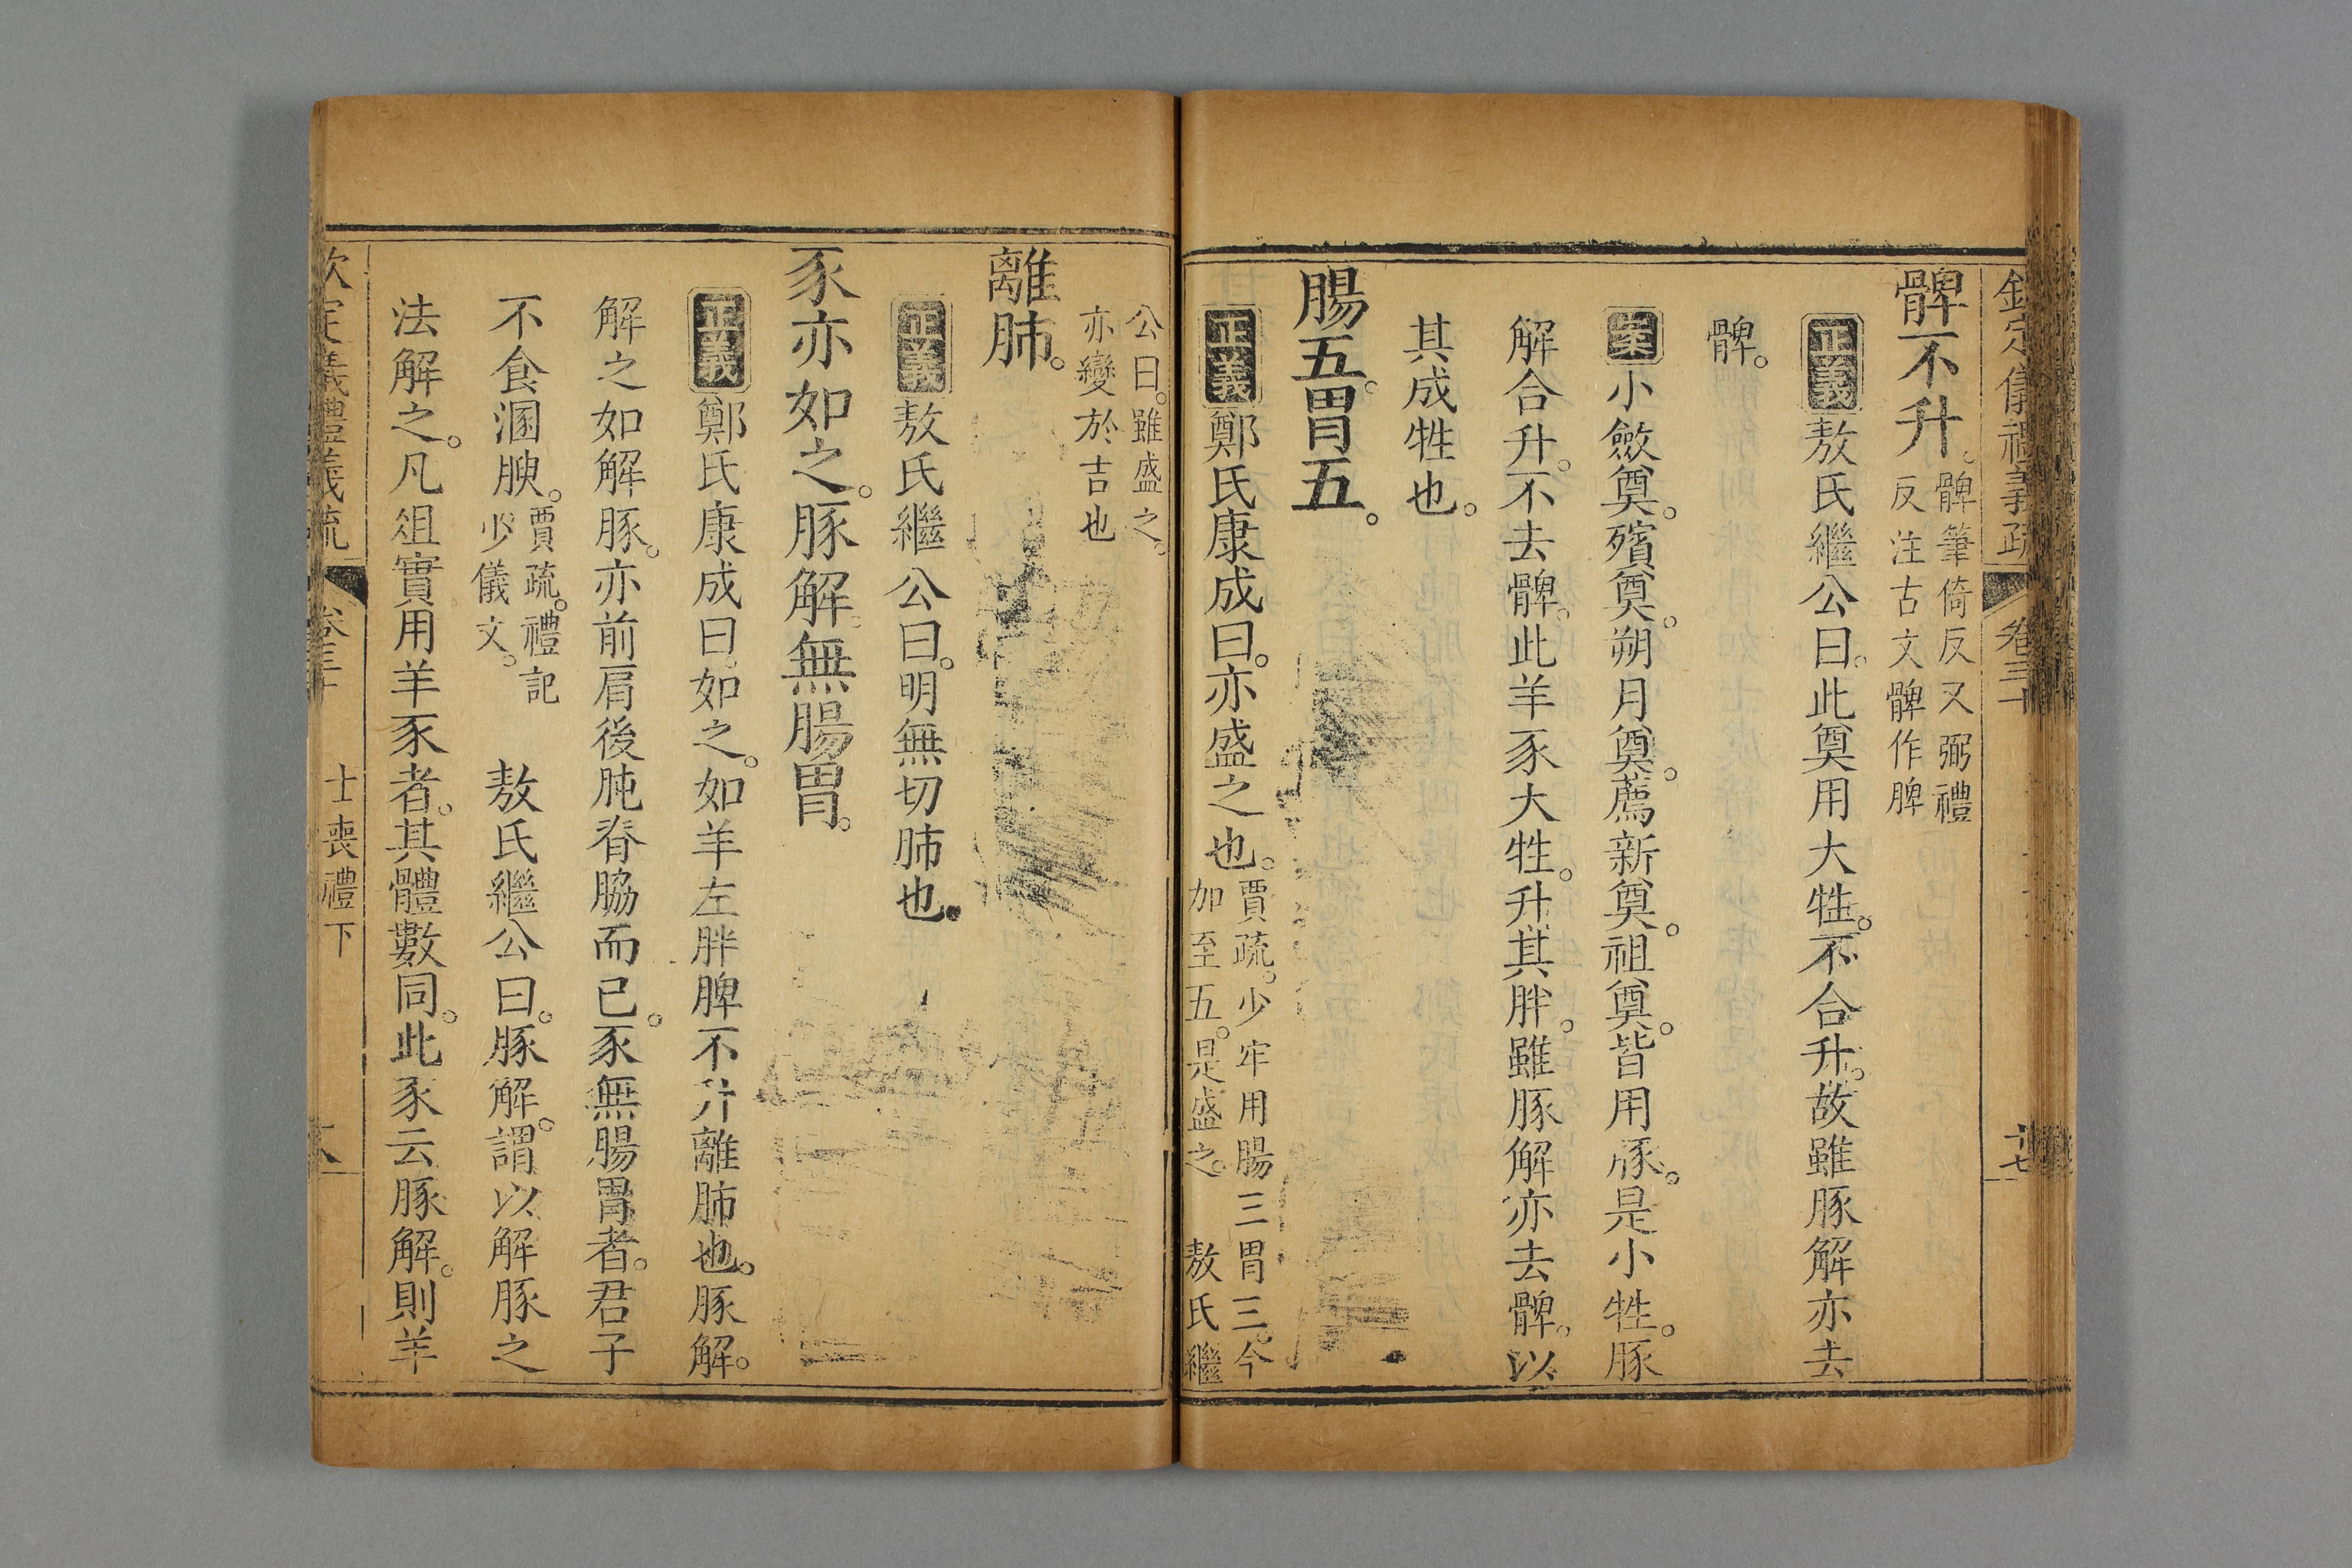 欽定儀禮義疏 卷三十 十七
髀不升。髀筆倚反又弼禮
反注古文髀作脾
正義敖氏繼公曰。此奠用大牲。不合升。故雖豚解亦去
髀。
案小斂奠。殯奠。朔月奠。薦新奠。祖奠。皆用豚。是小牲。豚
解合升。不去髀。此羊豕大牲。升其胖。雖豚解亦去髀。以
其成牲也。
腸五。胃五。
正義鄭氏康成曰。亦盛之也。賈疏。少牢用腸三胃三。今
加至五。是盛之。 敖氏繼
公曰。雖盛之。
亦變於吉也
離肺。
正義敖氏繼公曰。明無切肺也。
豕亦如之。豚解。無腸胃。
正義鄭氏康成曰。如之。如羊左胖髀不升離肺也。豚解。
解之如解豚。亦前肩後肫脊脇而已。豕無腸胃者。君子
不食溷腴。賈疏。禮記
少儀文。 敖氏繼公曰。豚解。謂以解豚之
法解之。凡俎實用羊豕者。其體數同。此豕云豚解。則羊
欽定儀禮義疏 卷三十 士喪禮下 十八